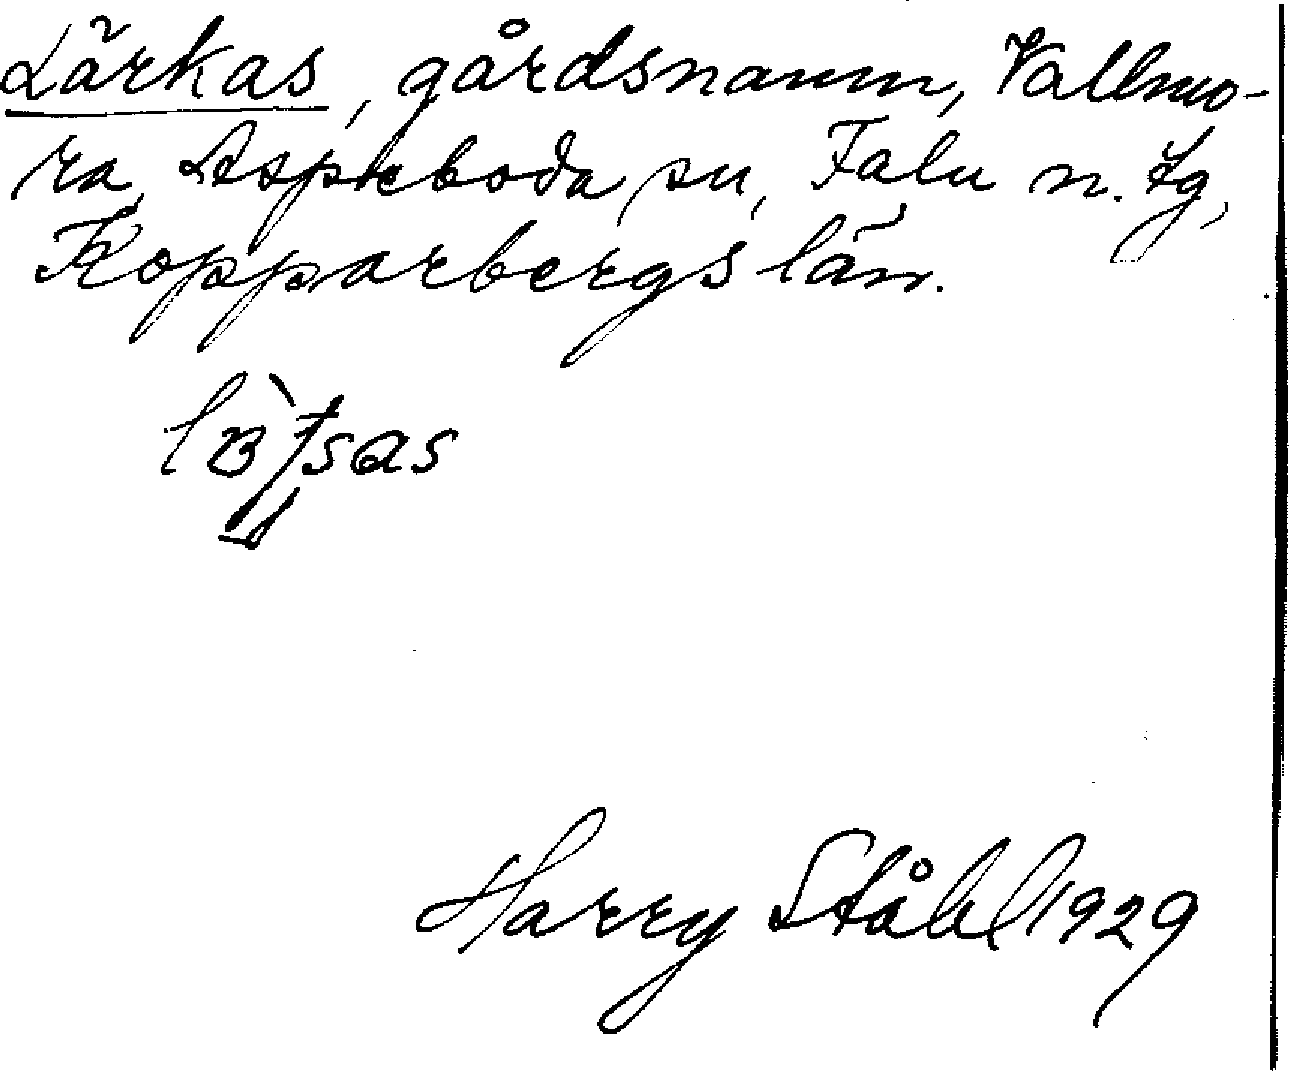 Lärkas, gårdsnamn, Vallmo-
ra, Aspeboda sn, Falu n. tg,
Kopparbergs län.
Harry Ståhl 1929